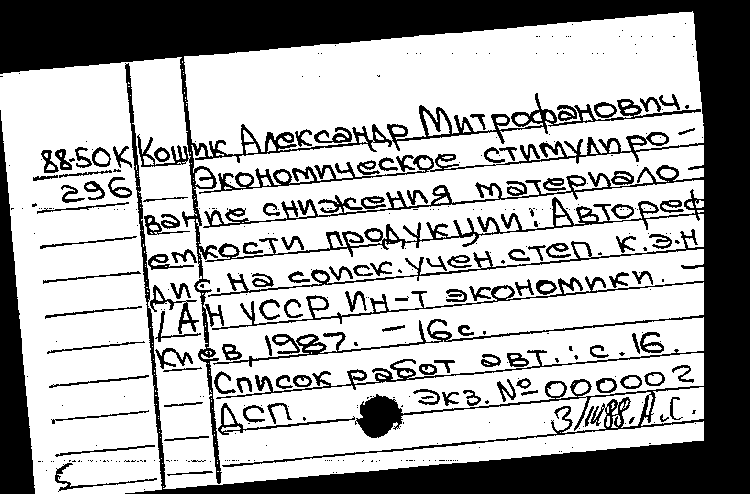 88-50К Кошик, Александр Митрофанович.
296 Экономическое стимулиро-
вание снижения материало-
емкости продукции: Автореф
дис. на соиск. учен. степ. к.э.н
/ АН УССР, Ин-т экономики. –
Киев, 1987. – 16 с.
Список работ авт.: с. 16.
ДСП. Экз. № 000002
3/III 88. А.С.